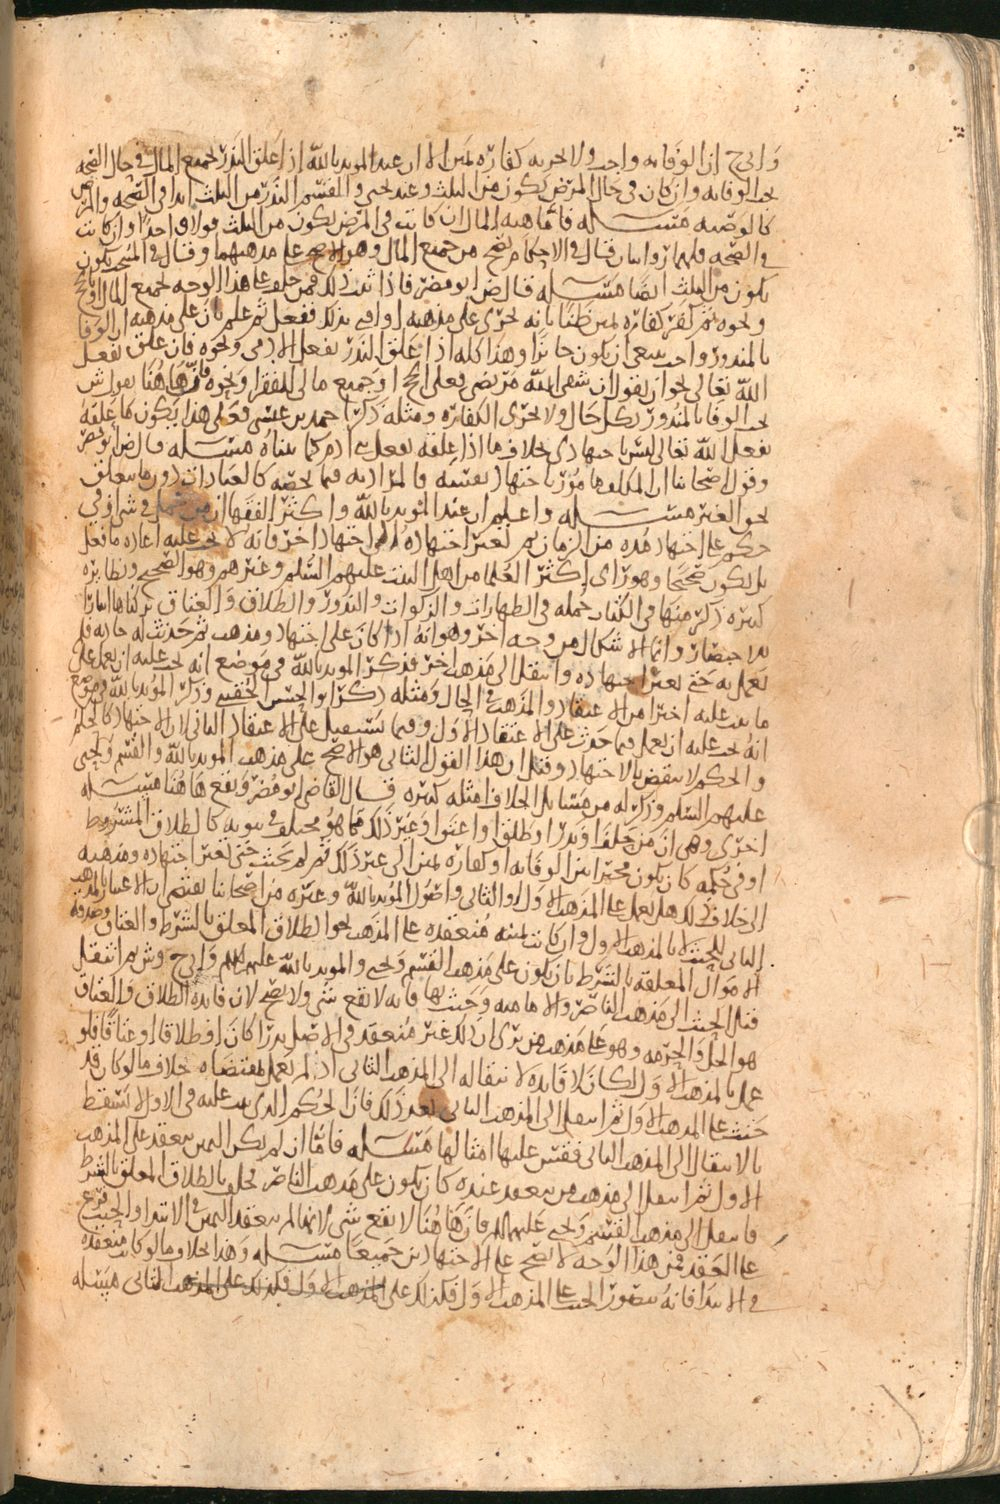 وابح إن الوفا به واجب ولا تجزيه كفارة يمين الا ان عند المويد بالله إذا علق النذر بجميع المال في حال الصحه
يجب الوفا به وان كان في حال المرض يكون من الثلث وعند يحيى والقسم النذر من الثلث ابدا في الصحه والمرض
كالوصيه مسـله فاما هبه المال ان كانت في المرض يكون من الثلث قولا واحدا وان كانت
في الصحه فلهما روايتان قال في الاحكام تصح من جميع المال وهو الاصح على مذهبهما وقال في المنتخب يكون
يكون من الثلث ايضا مسـله قال ض ابو مضر فاذا ثبت ذلك فمن حلف على هذا الوجه بجميع المال او بالحج
ونحوه ثم كفر كفارة يمين ظنا بانه تجزي على مذهبه او افتي بذلك ففعل ثم علم بان على مذهبه ان الوفا
بالمنذور واجب ينبغي ان يكون جائزا وهذا كله اذا علق النذر بفعل الادمي ونحوه فان علق بفعل
الله تعالى نحو ان يقول ان شفى الله مريضي فعلي الحج او جميع مالي للفقرا ونحوه فان هاهنا يعول ش
يجب الوفا بالمنذور بكل حال ولا تجزي الكفاره ومثله ذكر احمد بن عيسى فعلى هذا يكون ما علقه
بفعل الله تعالى ليس باجتهادي خلاف ما اذا علقه بفعل بني ادم كما بيناه مسـله قال ض ابو مضر
وقول اصحابنا ان المكلف مامور باجتهاد نفسه فالمراد به فيما يخصه كالعبادات دون ما يتعلق
بحق الغير مسـله واعلم ان عند المويد بالله واكثر الفقها ان من عمل في شي او في
حكم على اجتهاده مده من الزمان ثم تغير اجتهاده الى اجتهاد اخر فانه لا يجب عليه اعاده ما فعل
بل يكون صحيحا وهو راي اكثر العلما من اهل البيت عليهم السلم وغيرهم وهو الصحيح ونظايره
كثيره ذكر منها في الكتاب جمله في الطهارات والزكوات والنذور والطلاق والعتاق تركناها ايثارا
للاختصار وانما الاشكال من وجه اخر وهو انه اذا كان على اجتهاد ومذهب ثم حدثت له حادثه فلم
يعمل به حتى تغير اجتهاده وانتقل الى مذهب اخر فذكر المويد بالله في موضع انه يجب عليه ان يعمل على
ما يثبت عليه اخيرا من الاعتقاد والمذهب في الحال ومثله ذكر ابو الحسن الحنفي وذكر المويد بالله في موضع
انه يجب عليه ان يعمل فيما حدث على الاعتقاد الاول وفيما يستقبل على الاعتقاد الثاني لان الاجتهاد كالحكم
والحكم لا ينقض بالاجتهاد وقيل ان هذا القول الثاني هو الاصح على مذهب المويد بالله والقسم ويحيى
عليهم السلم وذكر له من مسايل الخلاف امثله كثيره قال القاضي ابو مضر ويقع هاهنا مسـله
اخرى وهي ان من حلف او نذر او طلق او اعتق او غير ذلك مما هو مختلف في ثبوته كالطلاق المشروط
او في حكمه كان يكون مخيرا بين الوفا به او كفارة يمين الى غير ذلك ثم لم يحنث حتى تغير اجتهاده ومذهبه
الى خلاف ذلك هل يعمل على المذهب الاول او الثاني واصول المويد بالله وغيره من اصحابنا يقتضي ان الاعتبار بالمذهب
الثاني للحنث لا بالمذهب الاول وان كانت يمينه منعقده على المذهب نحو الطلاق المعلق بالشرط والعتاق وصدقه
الاموال المعلقه بالشرط بان يكون على مذهب القسم ويحيى والمويد بالله عليهم السلم وابح وش ثم انتقل
قبل الحنث الى مذهب الناصر والاماميه وحنث بها فانه لا يقع شي ولا يصح لان فايدة الطلاق والعتاق
هو الحل والحرمه وهو على مذهب من يرى ان ذلك غير منعقد في الاصل نذرا كان او طلاقا او عتاقا فلو
عمل بالمذهب الاول لكان لا فايده لانتقاله الى المذهب الثاني اذ لم يعمل بمقتضاه خلاف ما لو كان قد
حنث على المذهب الاول ثم انتقل الى المذهب الثاني بعد ذلك فان الحكم الذي يثبت عليه في الاول لا يسقط
بالانتقال الى المذهب الثاني فقس عليها امثالها مسـله فاما ان لم يكن اليمين ينعقد على المذهب
الاول ثم انتقل الى مذهب من ينعقد عنده كان يكون على مذهب الناصر يحلف بالطلاق المعلق بالشرط
فانتقل الى مذهب القسم ويحيى عليهما السلم فان هاهنا لا يقع شي لانها لم ينعقد اليمين في الابتدا والحنث فرع
على العقد فمن هذا الوجه لا يصح على الاجتهادين جميعا مسـله وهذا خلاف ما لو كانت منعقده
في الابتدا فانه يتصور الحنث على المذهب الاول فكذلك على المذهب الثاني مسـله